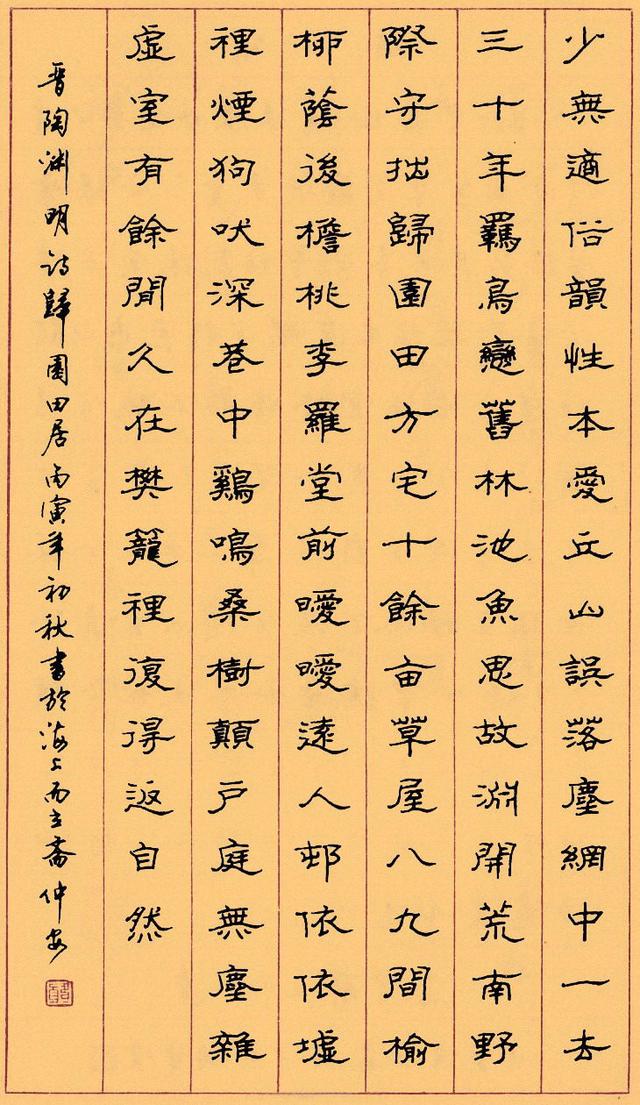 少無適俗韻性本愛丘山誤落塵網中一去
三十年羈鳥戀舊林池魚思故淵開荒南野
際守拙歸園田方宅十餘亩草屋八九間榆
柳蔭後檐桃李羅堂前曖曖遠人邨依依墟
裡煙狗吠深巷中鷄鳴桑樹顛戶庭無塵雜
虛室有餘閒久在樊籠裡復得返自然
晋陶渊明诗歸園田居丙寅年初秋書於海上而立齋仲安